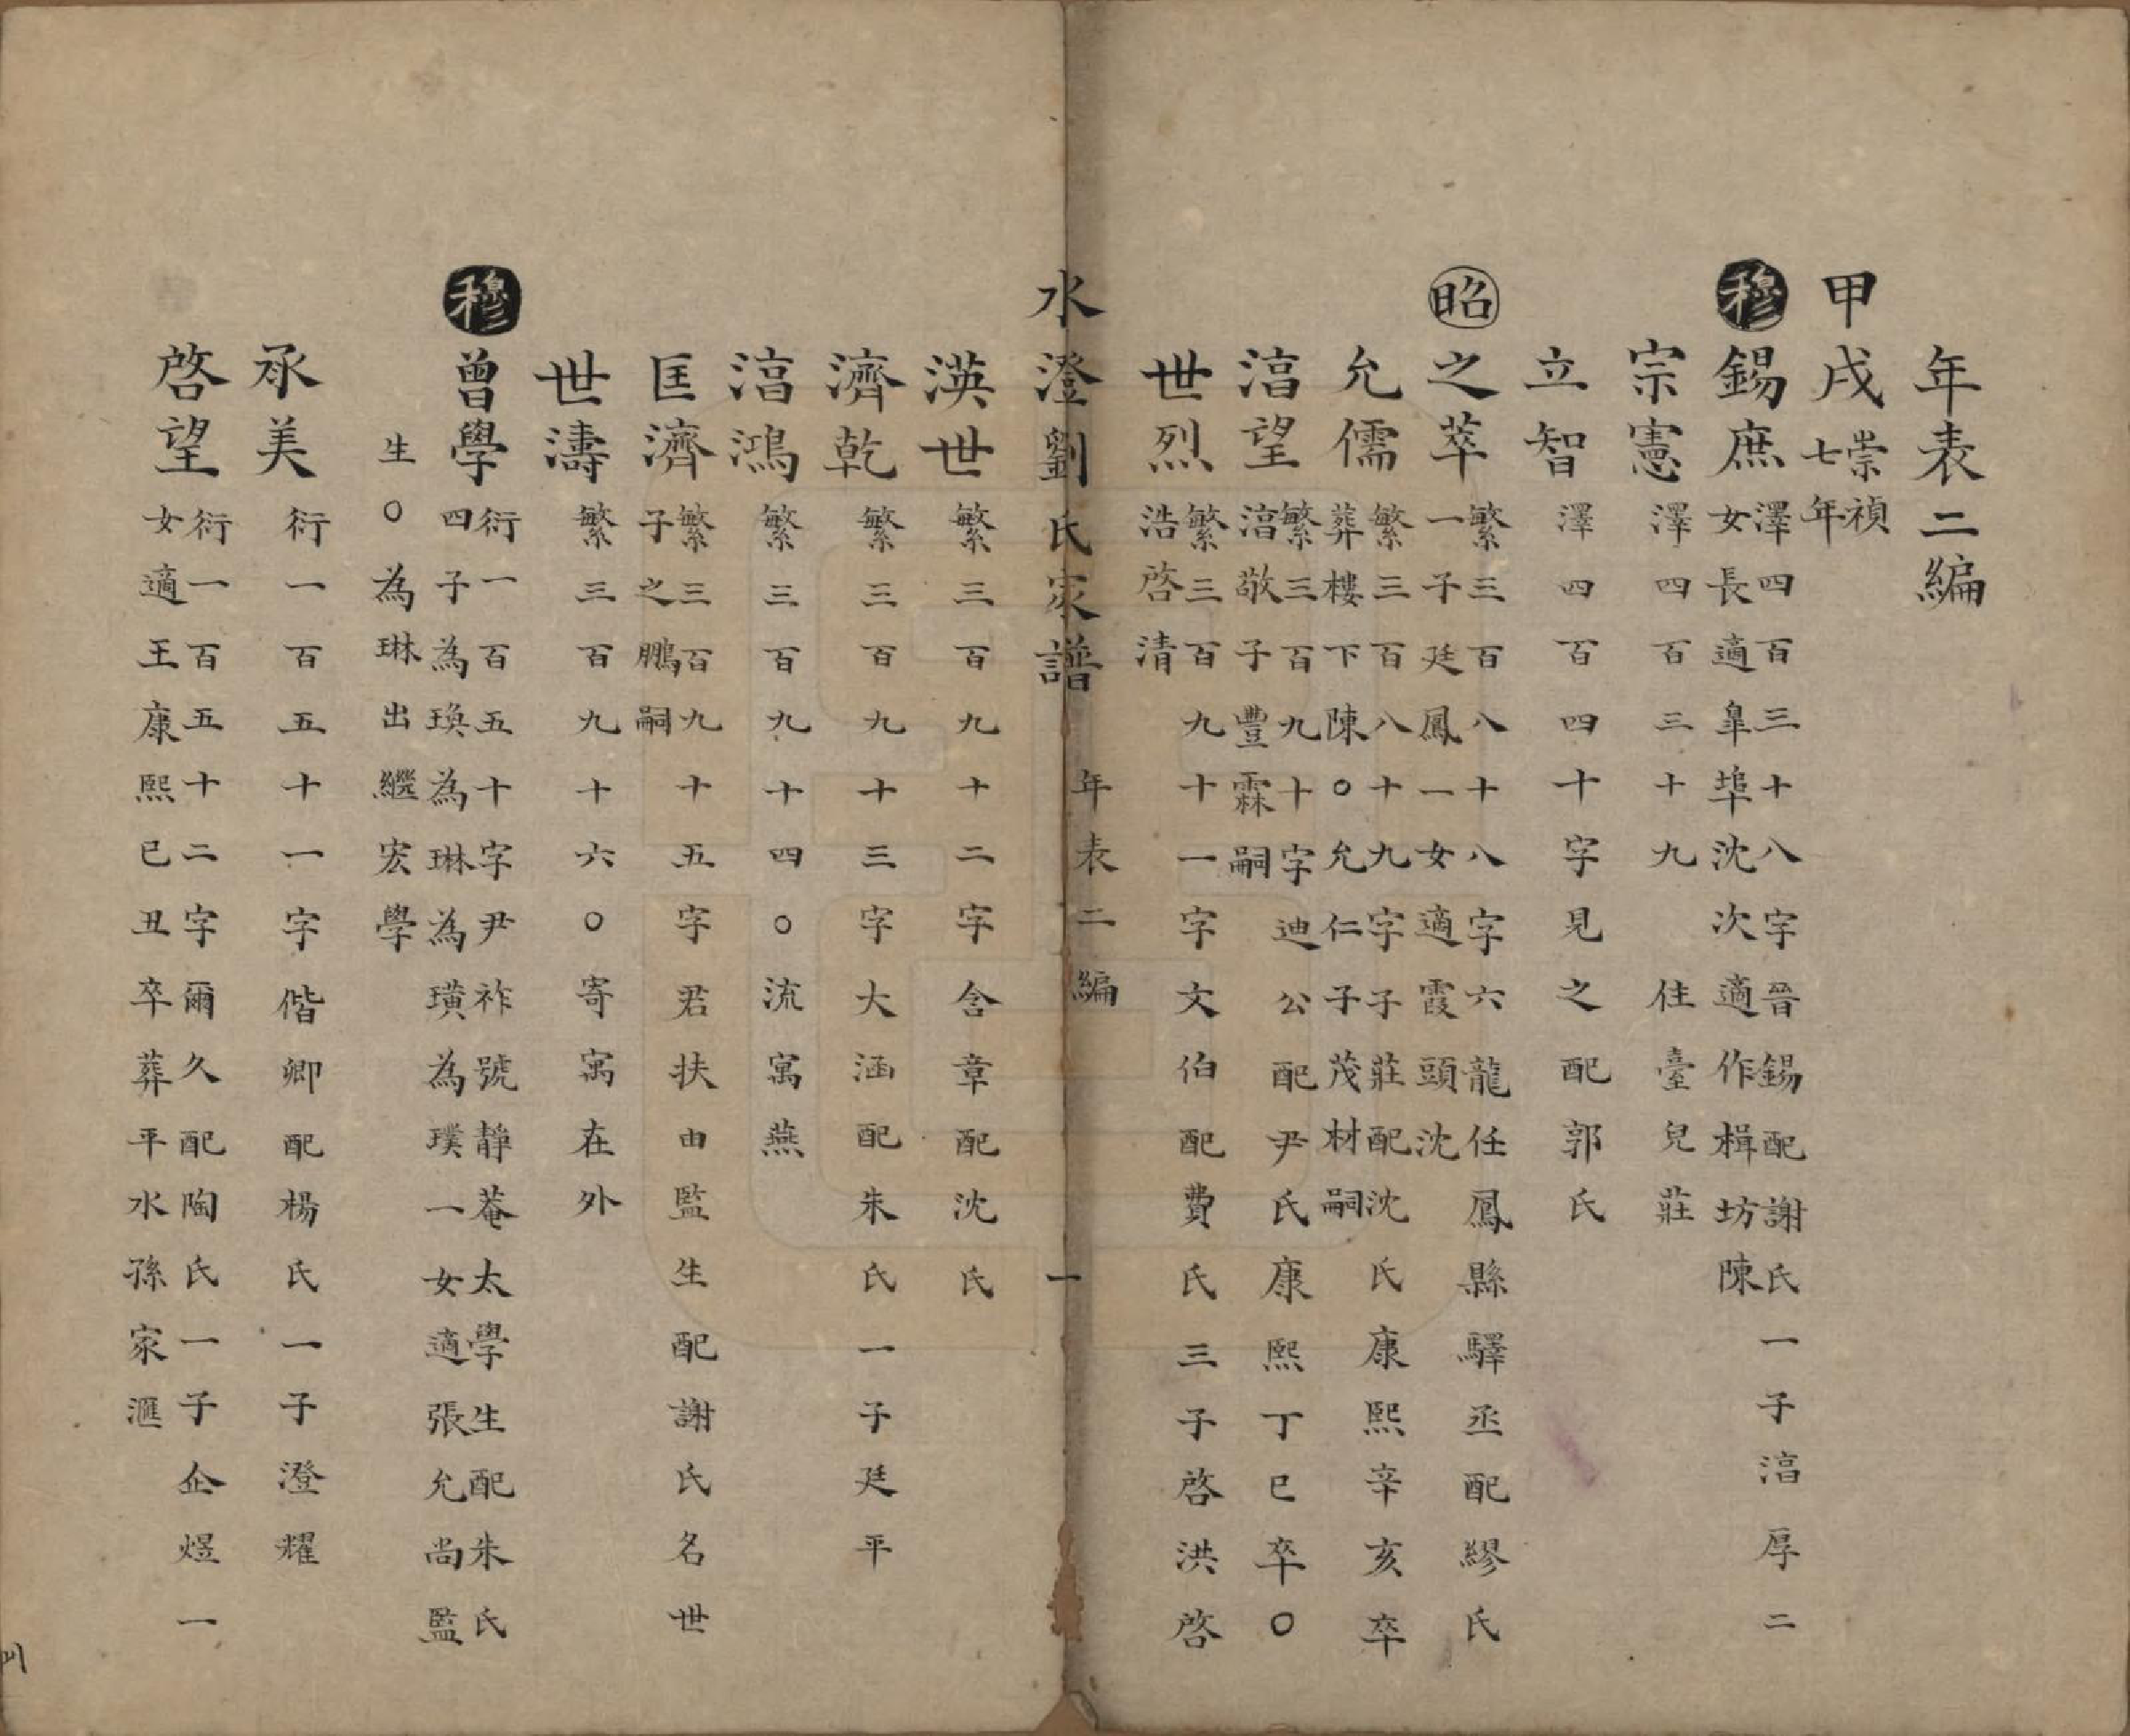 年表二編
甲戌崇禎七年
穆 錫庶 澤四百三十八字晉錫配謝氏一子湻厚二
女長適臯埠沈次適作楫坊陳
宗憲 澤四百三十九 住臺兒莊
立智 澤四百四十字見之配郭氏
昭 之萃 繁三百八十八字六龍任鳳縣驛丞配繆氏
一子廷鳳一女適霞頭沈
允儒 繁三百八十九字子莊配沈氏康熙辛亥卒
葬樓下陳○允仁子子茂材嗣
湻望 繁三百九十字迪公配尹氏康熙丁巳卒○
湻敬子豐霖嗣
世烈 繁三百九十一字文伯配費氏三子啓洪啓
浩啓清
水澄劉氏家譜 年表二編 一
渶世 繁三百九十二字含章配沈氏
濟乾 繁三百九十三字大涵配朱氏一子廷平
湻鴻 繁三百九十四○流寓燕
匡濟 繁三百九十五字君扶由監生配謝氏名世
子之鵬嗣
世濤 繁三百九十六○寄寓在外
穆 曾學 衍一百五十字尹祚號靜菴太學生配朱氏
四子為瑍為琳為璜為璞一女適張允尚監
生○為琳出繼宏學
承美 衍一百五十一字偕卿配楊氏一子澄耀
啓望 衍一百五十二字爾久配陶氏一子企煜一
女適王康熙己丑卒葬平水孫家滙